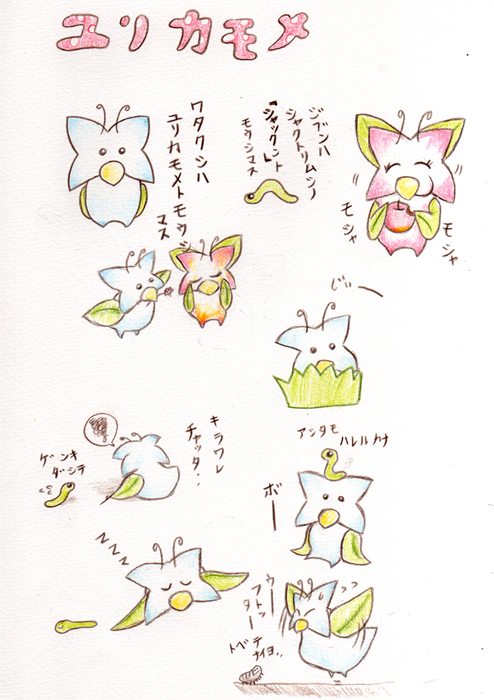 ユリカモメ
ワタクシハ
ユリカモメトモウシ
マス
ジブンハ
シャクトリムシノ
「シャックント」
モウシマス
モシャ
モシャ
じぃー
キラワレ
チャッタ・・
ゲンキ
ダシテ
アシタモ
ハレルカナ
ボー
ZZZ
ウー
フトッ
ター
トベテ
ナイヨ・・